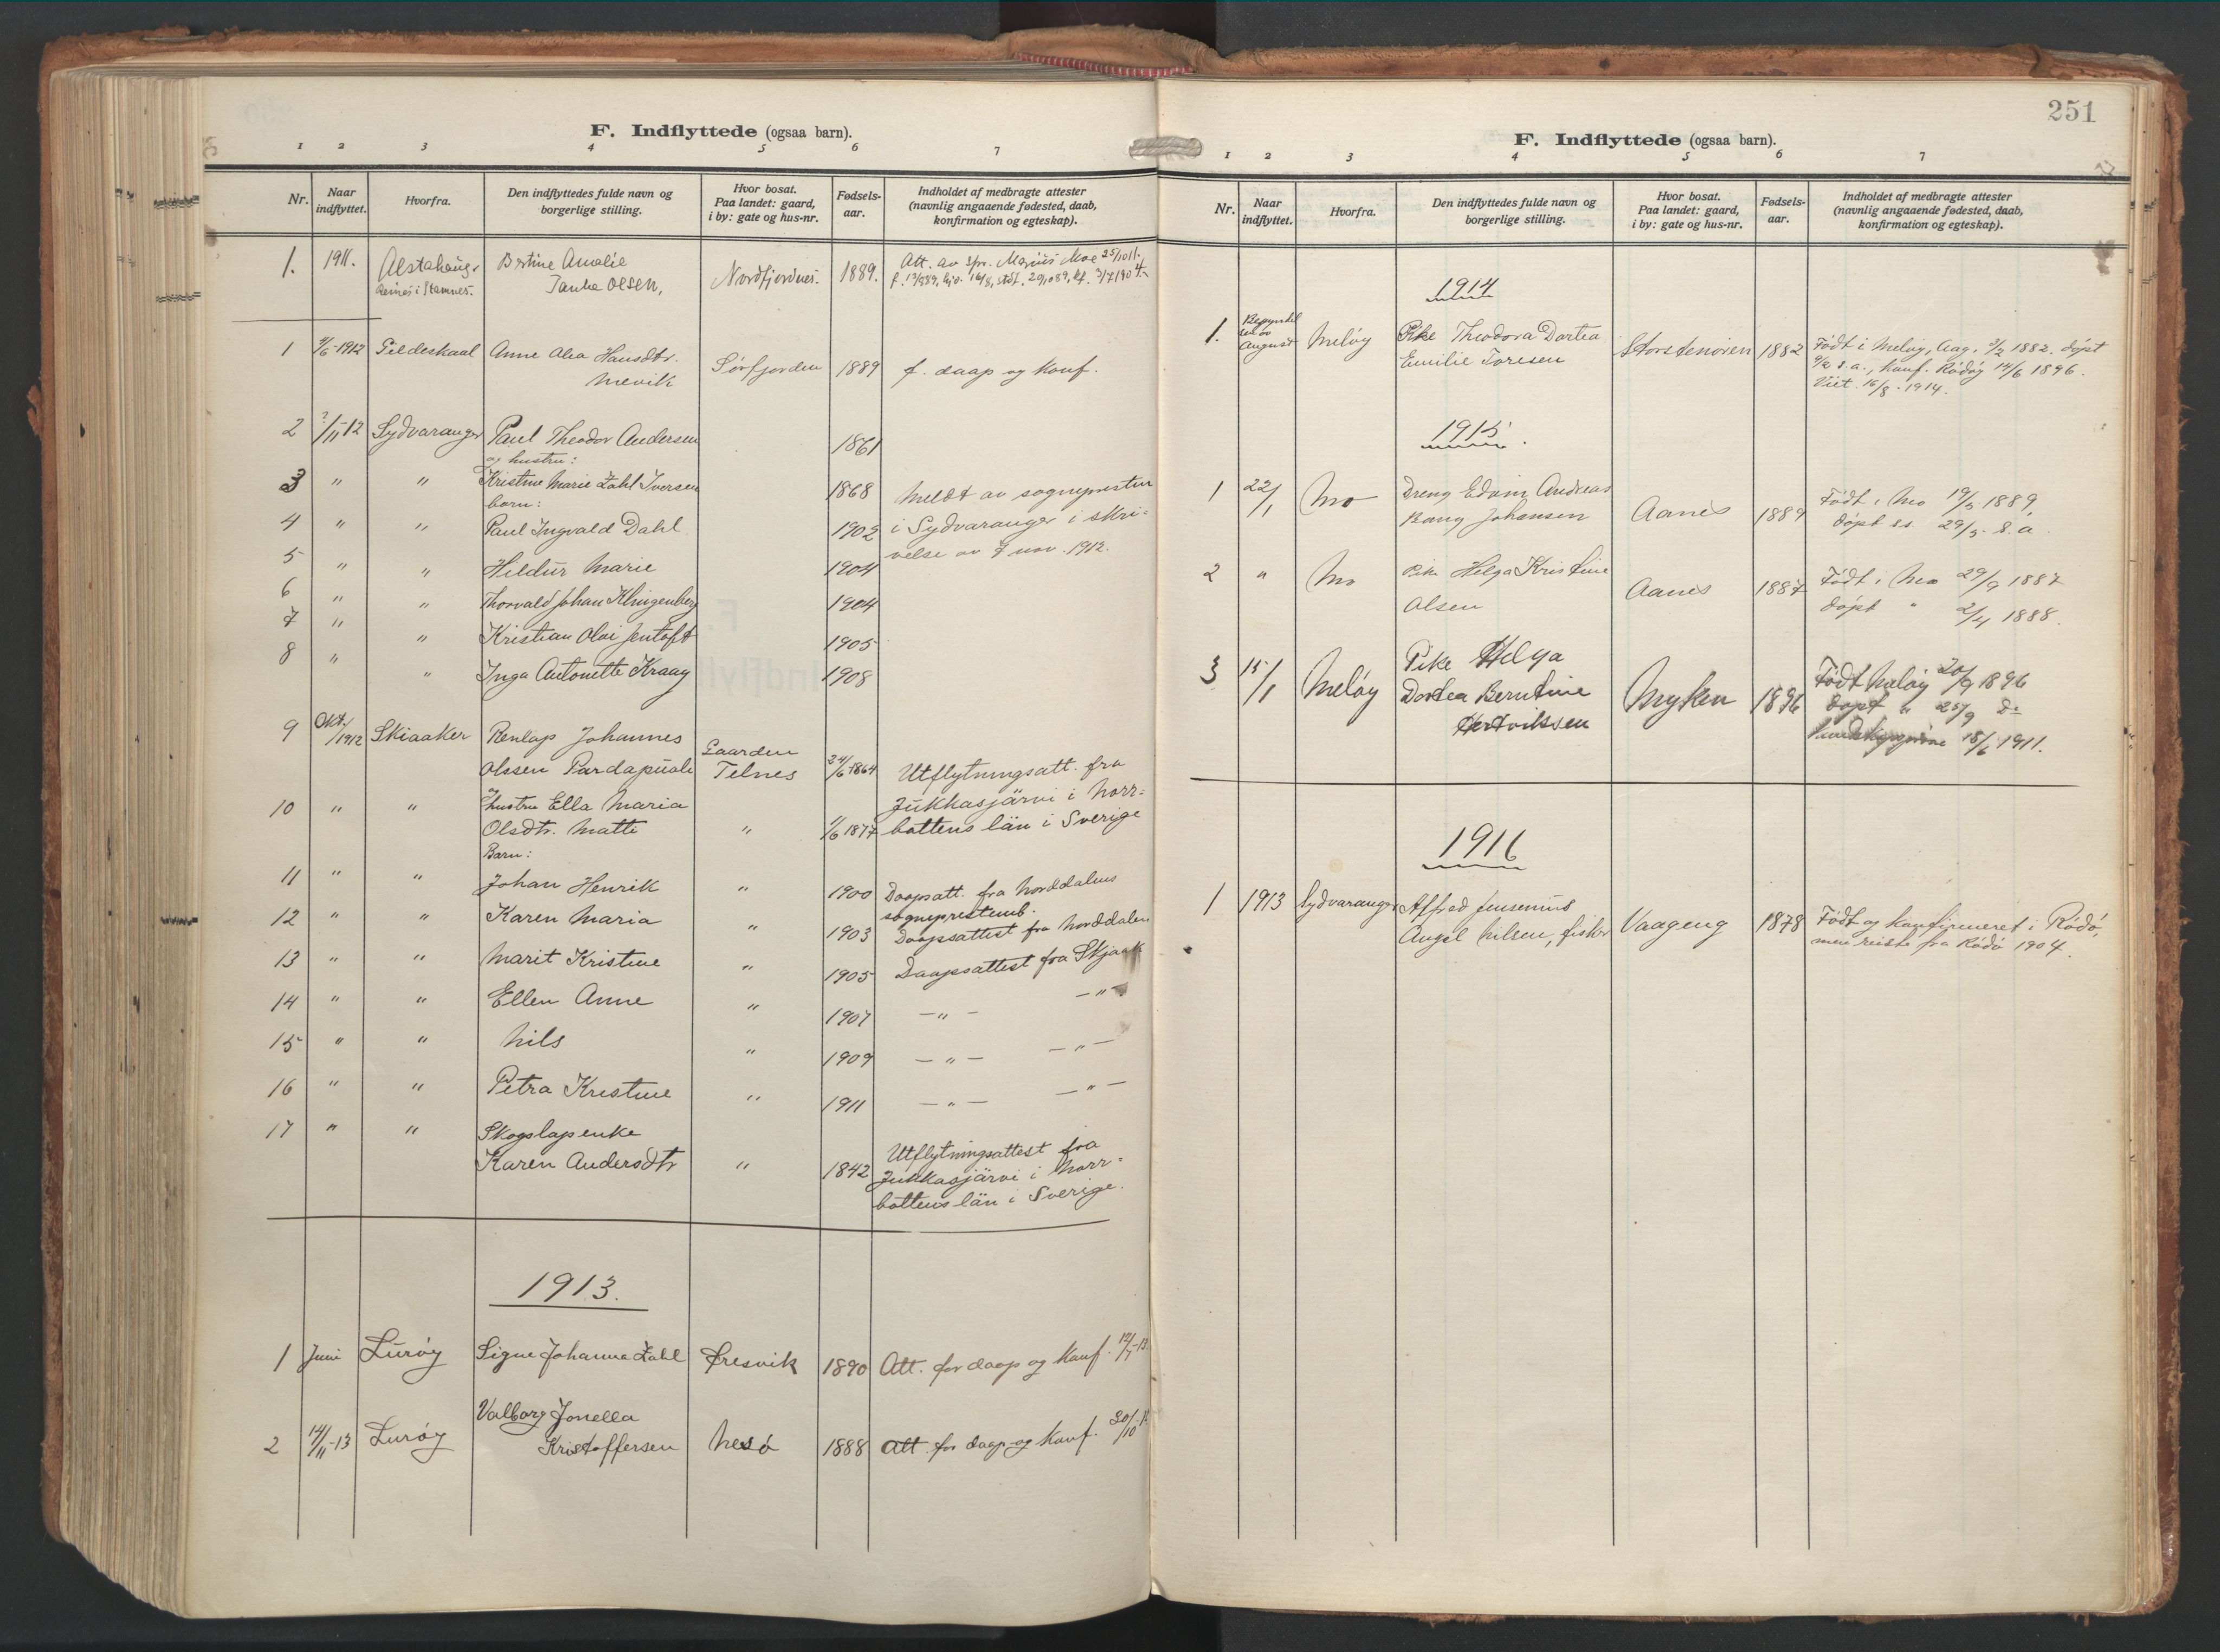 F. Indflyttede (ogsaa barn).
1 2 3 4 5 6 7
Nr. Naar indflyttet. Hvorfra. Den indflyttedes fulde navn og borgerlige stilling. Hvor bosat. Paa landet: gaard, i by: gate og hus-nr. Fødsels-aar. Indholdet af medbragte attester (navnlig angaaende fødested, daab, konfirmation og egteskap).
1. 1911. Alstahaug. Bertine Amalie Att. av spr. Marius Moe 25/10 11.
i Stamnes. Olsen, Nordfjordnes. 1889.
1 1912 Gildeskaal Anne Alea Hansdtr. Sörfjorden 1889 f. daap og konf.
Mevik
2 ?/11-12 Sydvaranger Paul Theodor Andersen 1861
og hustru:
3 " " Kristine Marie Zahl Iversen 1868 Meldt av sognepresten
barn:
4 " " Paul Ingvald Dahl 1902 i Sydvaranger i skri-
5 " " Hildur Marie 1904 velse av 7 nov. 1912.
6 " " Thorvald Johan Klingenberg 1904
7 " " Kristian Olai Jentoft 1905
8 " " Inga Antonette Kraag 1908
9 Okt. 1912 Skiaaker Renlap Johannes Gaarden
Olssen Pardapuoli Telnes 24/6 1864 Utflytningsatt. fra
10 " " og hustru Ella Maria Jukkasjärvi i Norr-
Olsdtr. Matti " 1/6 1877 bottens län i Sverige
Barn:
11 " " Johan Henrik " 1900 Daapsatt. fra Norddalens
sogneprestemb.
12 " " Karen Maria " 1903 Daapsattest fra Norddalen
13 " " Marit Kristine " 1905 Daapsattest fra Skjaak
14 " " Ellen Anne " 1907 — " — — " —
15 " " Nils " 1909 — " — — " —
16 " " Petra Kristine " 1911 — " — — " —
17 " " Skogslapenke
Karen Andersdtr " 1842 Utflytningsattest fra
Jukkasjärvi i Norr-
bottens län i Sverige.
1913.
1 Juni Lurøy Signe Johanna Zahl Øresvik 1890 Att. for daap og konf. 12/7-13.
2 14/11-13 Lurøy Valborg Jonella
Kristoffersen Nesö 1888 Att. for daap og konf. 30/10
251
F. Indflyttede (ogsaa barn).
1 2 3 4 5 6 7
Nr. Naar indflyttet. Hvorfra. Den indflyttedes fulde navn og borgerlige stilling. Hvor bosat. Paa landet: gaard, i by: gate og hus-nr. Fødsels-aar. Indholdet af medbragte attester (navnlig angaaende fødested, daab, konfirmation og egteskap).
1914
1. August Meløy Pike Theodora Dortea Storstenören 1882 Födt i Meløy, 3/2 1882. döpt
Emilie Toresen 9/2 s.a., konf. Rödöy 14/6 1896.
Viet 16/8 - 1914.
1915.
1 22/1 Mo Dreng Edvin Andreas Aanes 1889 Födt i Mo 19/3 1889,
Bang Johansen döpt ss. 29/3 s. a.
2 " Mo Pike Helga Kristine Aanes 1887 Födt i Mo 29/9 1887
Olsen döpt " 2/4 1888.
3 15/1 Meløy Pike Helga Födt Meløy 20/9 1896
Dortea Berntine Myken 1896 döpt " 25/9 do
Hertviksen 18/6 1911.
1916
1 1913 Sydvaranger Alfred Jensenius Vaageng 1878 Födt og konfirmeret i Rödö,
Angel Nilsen, fisker men reiste fra Rödö 1904.